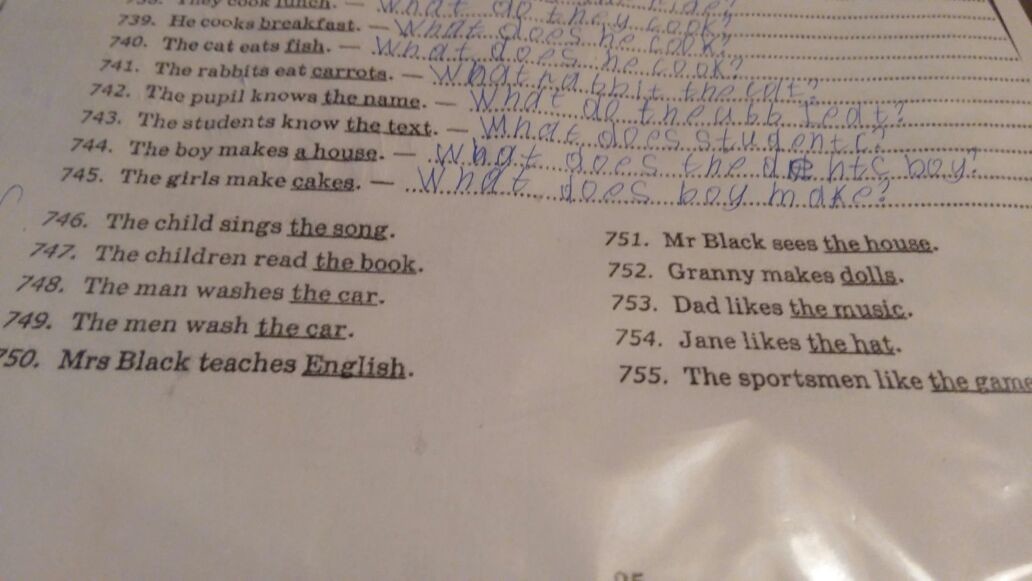 738. They cook lunch. — What do they cook?
739. He cooks breakfast. — What does he cook?
740. The cat eats fish. — What does he cook?
741. The rabbits eat carrots. — What rabbit the cat?
742. The pupil knows the name. — What do the eat?
743. The students know the text. — What does student?
744. The boy makes a house. — What does the boy?
745. The girls make cakes. — What does boy make?
746. The child sings the song.
747. The children read the book.
748. The man washes the car.
749. The men wash the car.
750. Mrs Black teaches English.
751. Mr Black sees the house.
752. Granny makes dolls.
753. Dad likes the music.
754. Jane likes the hat.
755. The sportsmen like the game